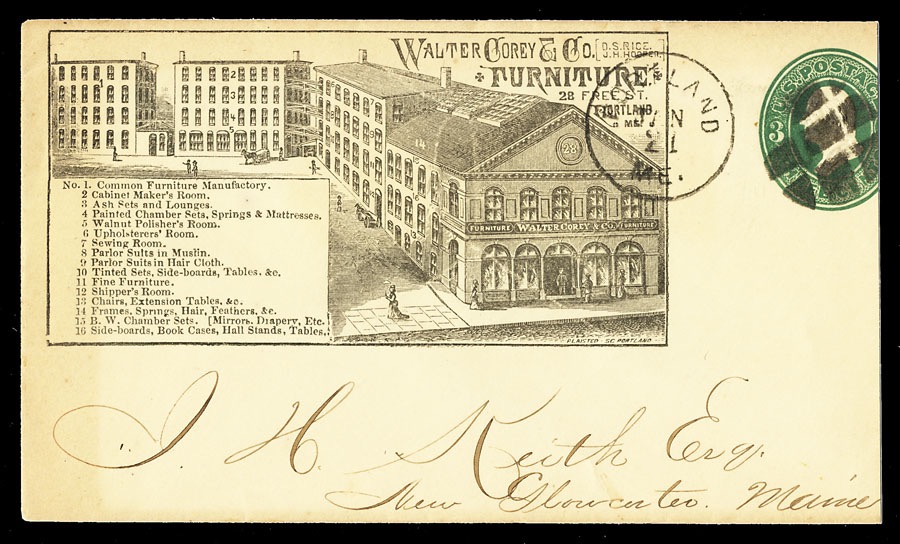 WALTER COREY & CO. [D. S. RICE.
J. H. HOOPER.
FURNITURE.
28 FREE ST.
PORTLAND,
ME.
LAND
21
ME.
U.S. POSTAGE
3
1
2
3
4
5
7
14
13
28
FURNITURE WALTER COREY & CO. FURNITURE
No. 1. Common Furniture Manufactory.
2 Cabinet Maker's Room.
3 Ash Sets and Lounges.
4 Painted Chamber Sets, Springs & Mattresses.
5 Walnut Polisher's Room.
6 Upholsterers' Room.
7 Sewing Room.
8 Parlor Suits in Muslin.
9 Parlor Suits in Hair Cloth.
10 Tinted Sets, Side-boards, Tables, &c.
11 Fine Furniture.
12 Shipper's Room.
13 Chairs, Extension Tables, &c.
14 Frames, Springs, Hair, Feathers, &c.
15 B. W. Chamber Sets. [Mirrors, Drapery, Etc.
16 Side-boards, Book Cases, Hall Stands, Tables,
PLAISTED SC PORTLAND
J H. Keith Esq.
New Gloucester. Maine